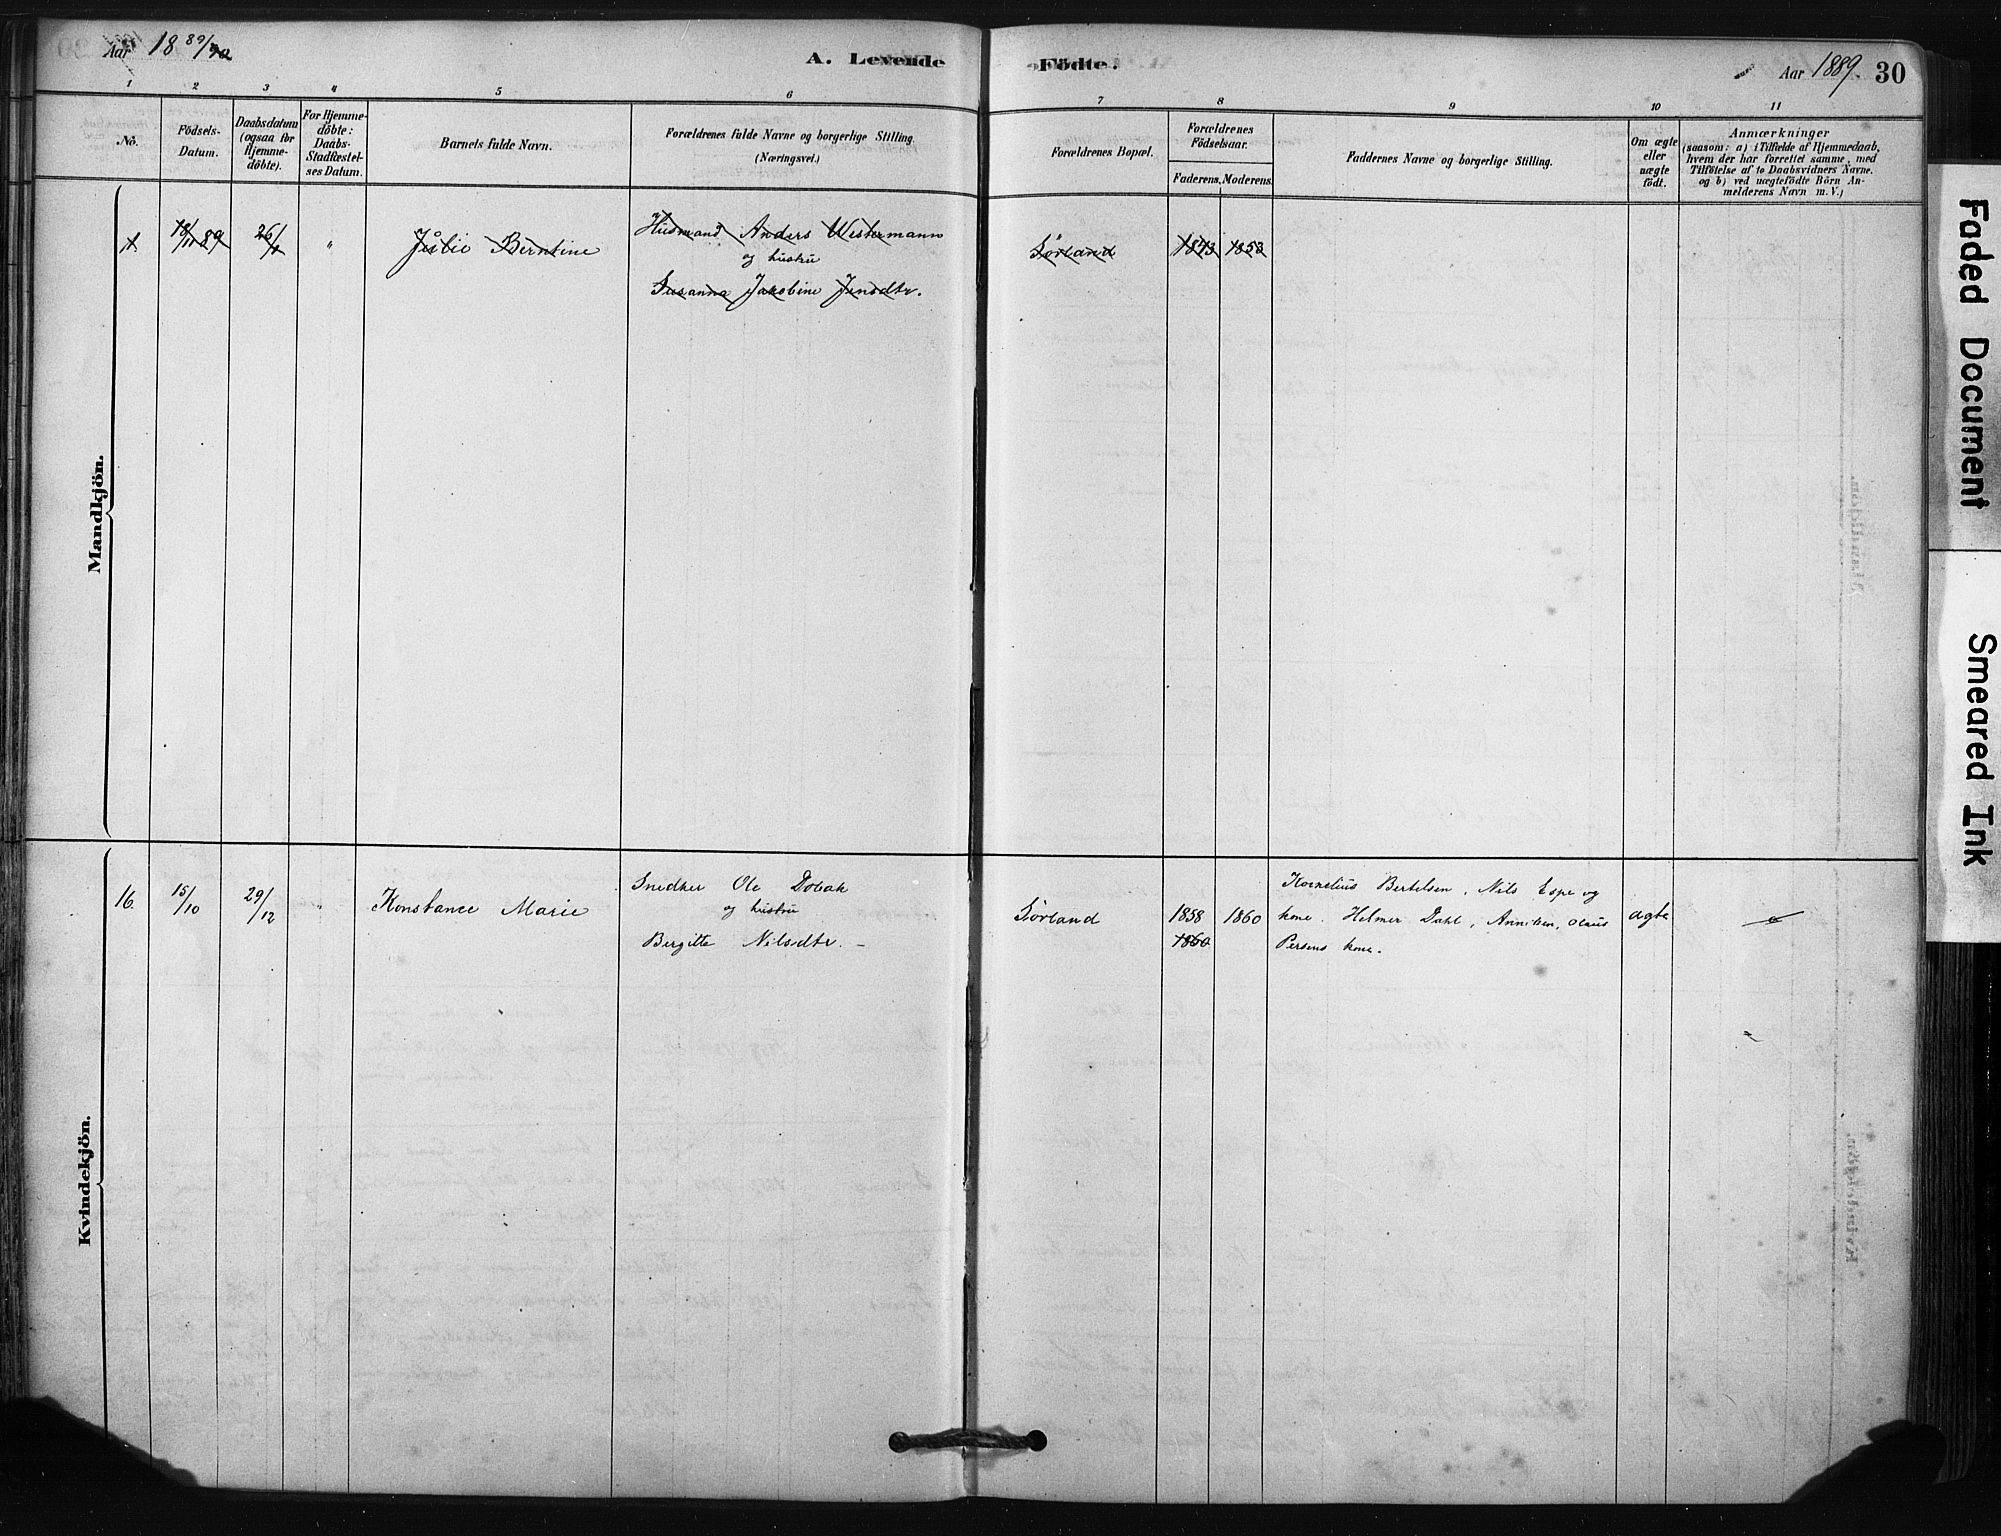 Aar 18 89/90
A. Levende
Födte.
Aar 1889.
30
1 2 3 4 5 6 7 8 9 10 11
No.
Födsels-
Datum.
Daabsdatum
(ogsaa for
Hjemme-
döbte).
For Hjemme-
döbte:
Daabs-
Stadfæstel-
ses Datum.
Barnets fulde Navn.
Forældrenes fulde Navne og borgerlige Stilling.
(Næringsvei.)
Forældrenes Bopæl.
Forældrenes
Födselsaar.
Faderens. Moderens.
Faddernes Navne og borgerlige Stilling.
Om ægte
eller
uægte
födt.
Anmærkninger
(saasom: a) i Tilfælde af Hjemmedaab,
hvem der har forrettet samme, med
Tilföielse af to Daabsvidners Navne.
og b) ved uægtefödte Börn An-
melderens Navn m. V.)
Mandkjön.
1. 18/11 89 26/1 " Julie Berntine
Husmand Anders Westermann
og hustru
Susanna Jakobine Jensdtr.
Sörland 1843 1853
Kvindekjön.
16. 15/10 29/12 " Konstance Marie
Snedker Ole Dobak
og hustru
Bergitte Nilsdtr. -
Sörland
1858 1860
1860
Kornelius Bertelsen, Nils Espe og
kone. Helmer Dahl, Annitken, Olaus
Persens kone.
ægte
Faded Document
Smeared Ink